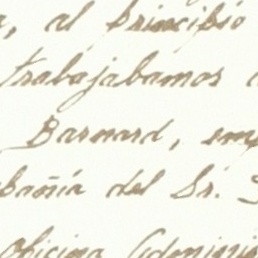 , al principio
trabajabamos
Barnard, em
bañía del Sr.
oficina